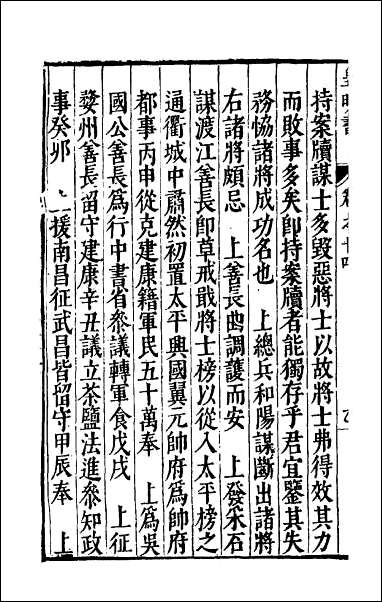 皇明書
卷之十四
持案牘謀士多毀惡將士以故將士弗得效其力
而敗事多矣即持案牘者能獨存乎君宜鑒其失
務協諸將成功名也 上總兵和陽謀斷出諸將
右諸將頗忌 上善長曲調護而安 上發采石
謀渡江善長即草戒戢將士榜以從入太平榜之
通衢城中肅然初置太平興國翼元帥府為帥府
都事丙申從克建康籍軍民五十萬奉 上為吳
國公善長為行中書省參議轉軍食戊戌 上征
婺州善長留守建康辛丑議立茶鹽法進參知政
事癸卯 上援南昌征武昌皆留守甲辰奉 上